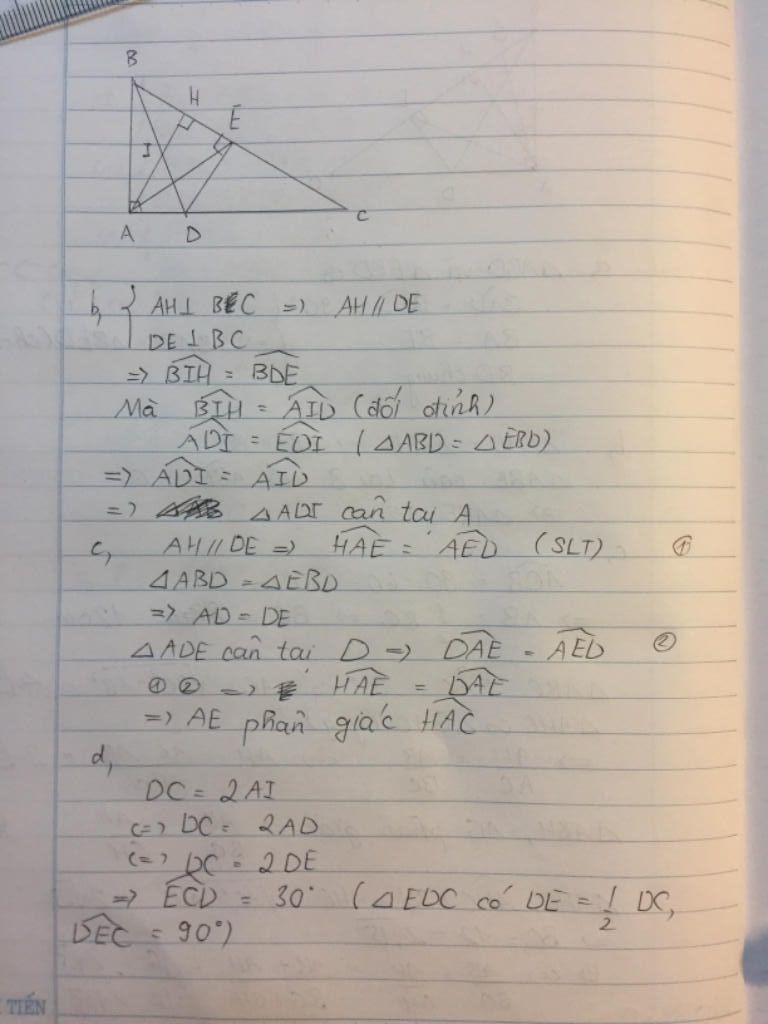 B
H
E
I
A
D
C
b, { AH ⊥ BC => AH // DE
DE ⊥ BC
=> BIH = BDE
Mà BIH = AID (đối đỉnh)
ADI = EDI (△ABD = △EBD)
=> ADI = AID
=> △ADI cân tại A
c, AH // DE => HAE = AED (SLT) ①
△ABD = △EBD
=> AD = DE
△ADE cân tại D => DAE = AED ②
① ② => HAE = DAE
=> AE phân giác HAC
d,
DC = 2AI
<=> DC = 2AD
<=> DC = 2DE
=> ECD = 30° (△EDC có DE = 1/2 DC,
DEC = 90°)
TIẾN